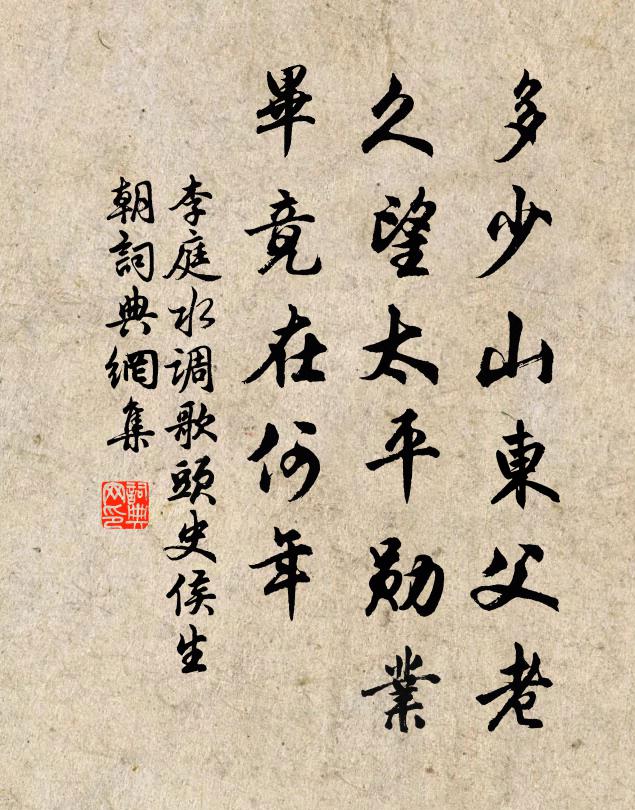 多少山東父老
久望太平勋業
畢竟在何年
李庭水调歌頭史侯生
朝詞典網集
詞典网印